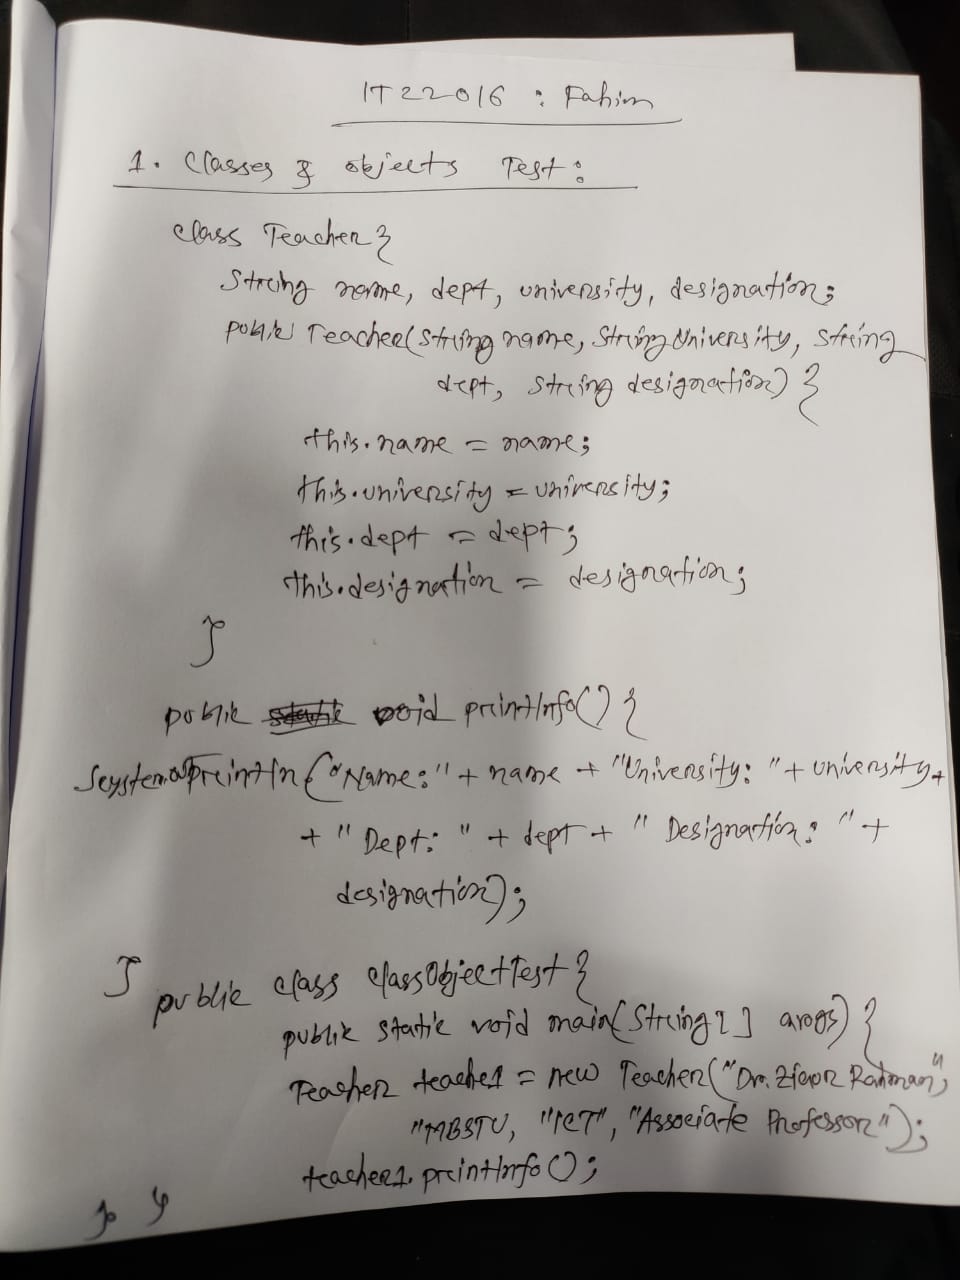 IT22016 : Fahim
1. Classes & objects Test:
class Teacher {
String name, dept, university, designation;
public Teacher(String name, String University, String
dept, String designation) {
this.name = name;
this.university = university;
this.dept = dept;
this.designation = designation;
}
public void printInfo() {
System.out.println("Name:" + name + "University: " + university +
+ " Dept: " + dept + " Designation: " +
designation);
}
public class ClassObjectTest {
public static void main(String[] args) {
Teacher teacher1 = new Teacher("Dr. Ziaur Rahman",
"MBSTU, "ICT", "Associate Professor");
teacher1.printInfo();
} }